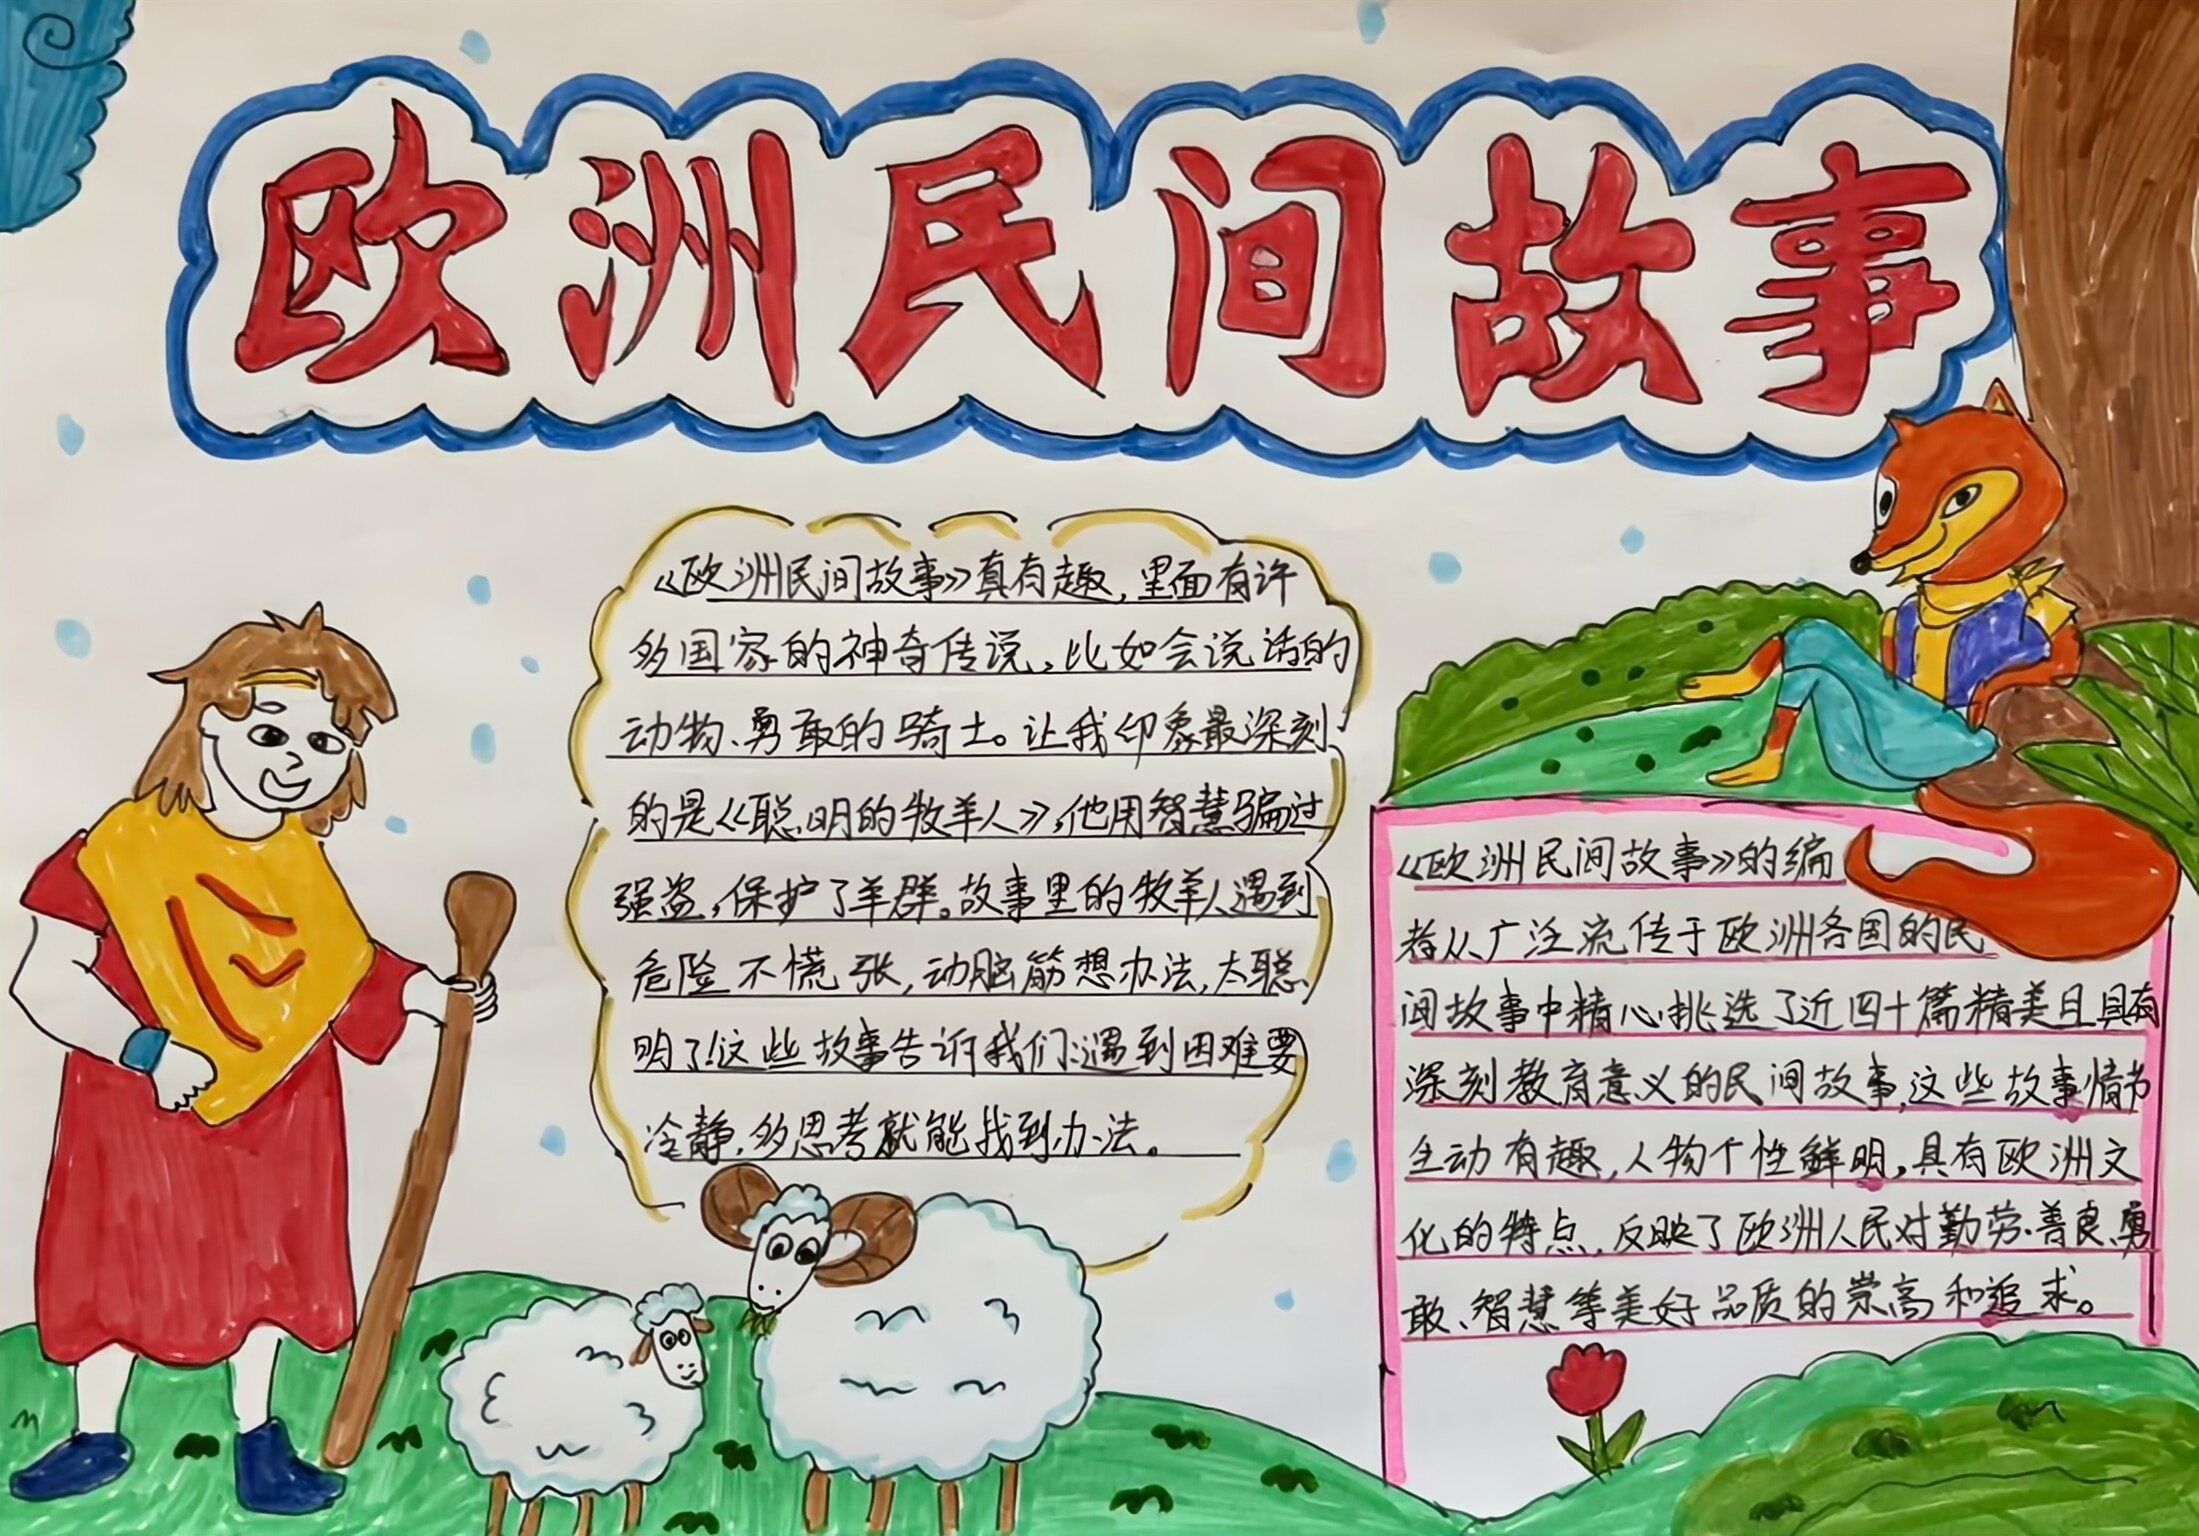 欧洲民间故事
《欧洲民间故事》真有趣，里面有许
多国家的神奇传说，比如会说话的
动物、勇敢的骑士。让我印象最深刻
的是《聪明的牧羊人》，他用智慧骗过
强盗，保护了羊群。故事里的牧羊人遇到
危险不慌张，动脑筋想办法，太聪
明了！这些故事告诉我们：遇到困难要
冷静，多思考就能找到办法。
《欧洲民间故事》的编
者从广泛流传于欧洲各国的民
间故事中精心挑选了近四十篇精美且具有
深刻教育意义的民间故事，这些故事情节
生动有趣，人物个性鲜明，具有欧洲文
化的特点，反映了欧洲人民对勤劳、善良、勇
敢、智慧等美好品质的崇高和追求。